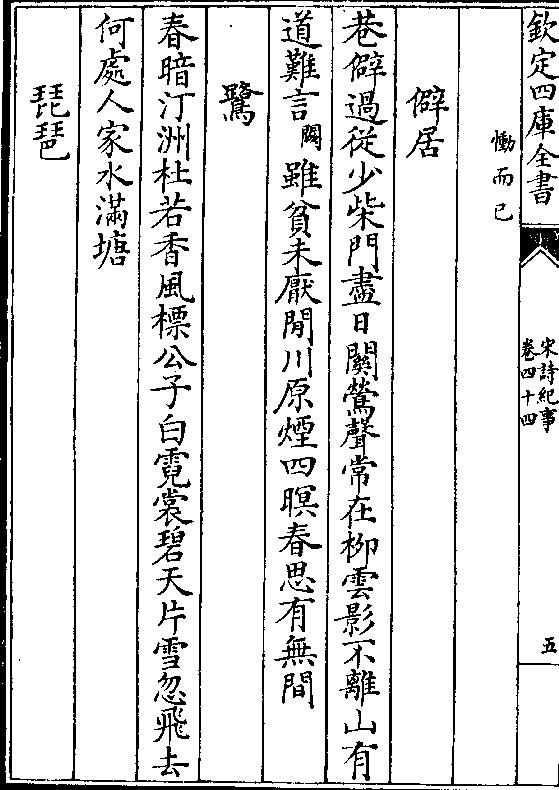 欽定四庫全書
宋詩紀事
卷四十四
五
慟而已
僻居
巷僻過從少柴門盡日關鶯聲常在柳雲影不離山有
道難言闕雖貧未厭閒川原煙四暝春思有無間
鷺
春暗汀洲杜若香風標公子白霓裳碧天片雪忽飛去
何處人家水滿塘
琵琶